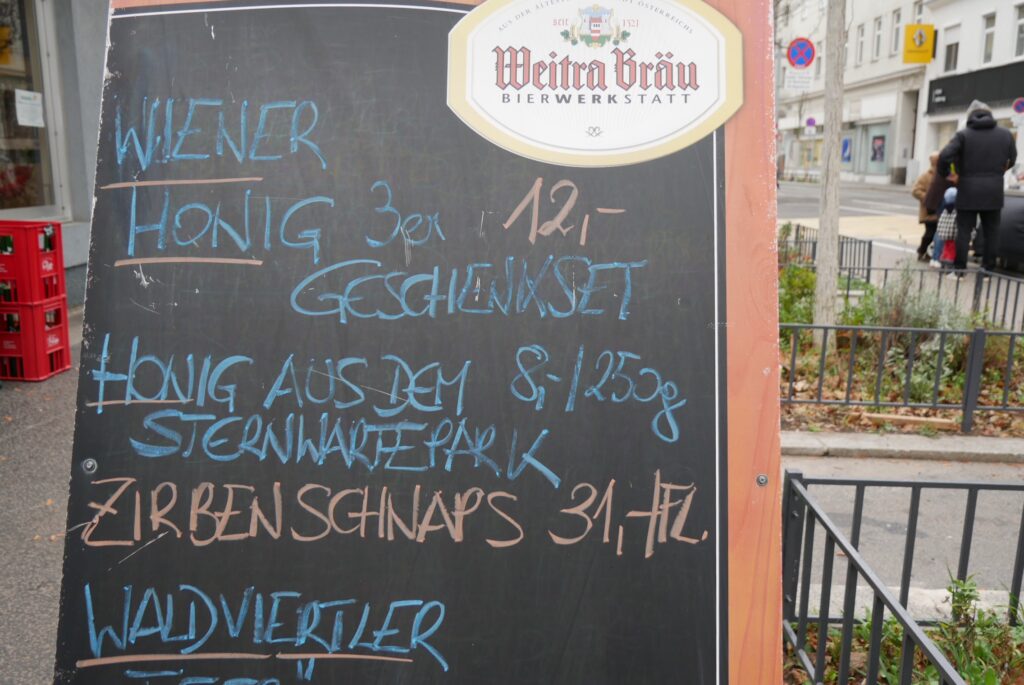 AUS DER ÄLTESTEN BRAUSTADT ÖSTERREICHS
SEIT 1321
Weitra Bräu
BIERWERKSTATT
WIENER
HONIG 3er 12,-
GESCHENKSET
HONIG AUS DEM 8,-/250g
STERNWARTEPARK
ZIRBENSCHNAPS 31,-/FL.
WALDVIERTLER